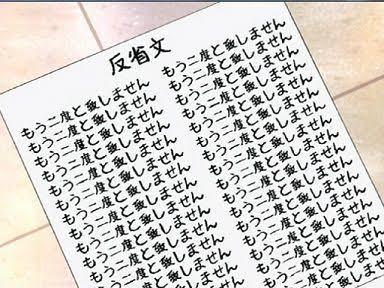 反省文
もう二度と致しません
もう二度と致しません
もう二度と致しません
もう二度と致しません
もう二度と致しません
もう二度と致しません
もう二度と致しません
もう二度と致しません
もう二度と致しません
もう二度と致しません
もう二度と致しません
もう二度と致しません
もう二度と致しません
もう二度と致しません
もう二度と致しません
もう二度と致しません
もう二度と致しません
もう二度と致しません
もう二度と致しません
もう二度と致しません
もう二度と致しません
もう二度と致しません
もう二度と致しません
もう二度と致しません
もう二度と致しません